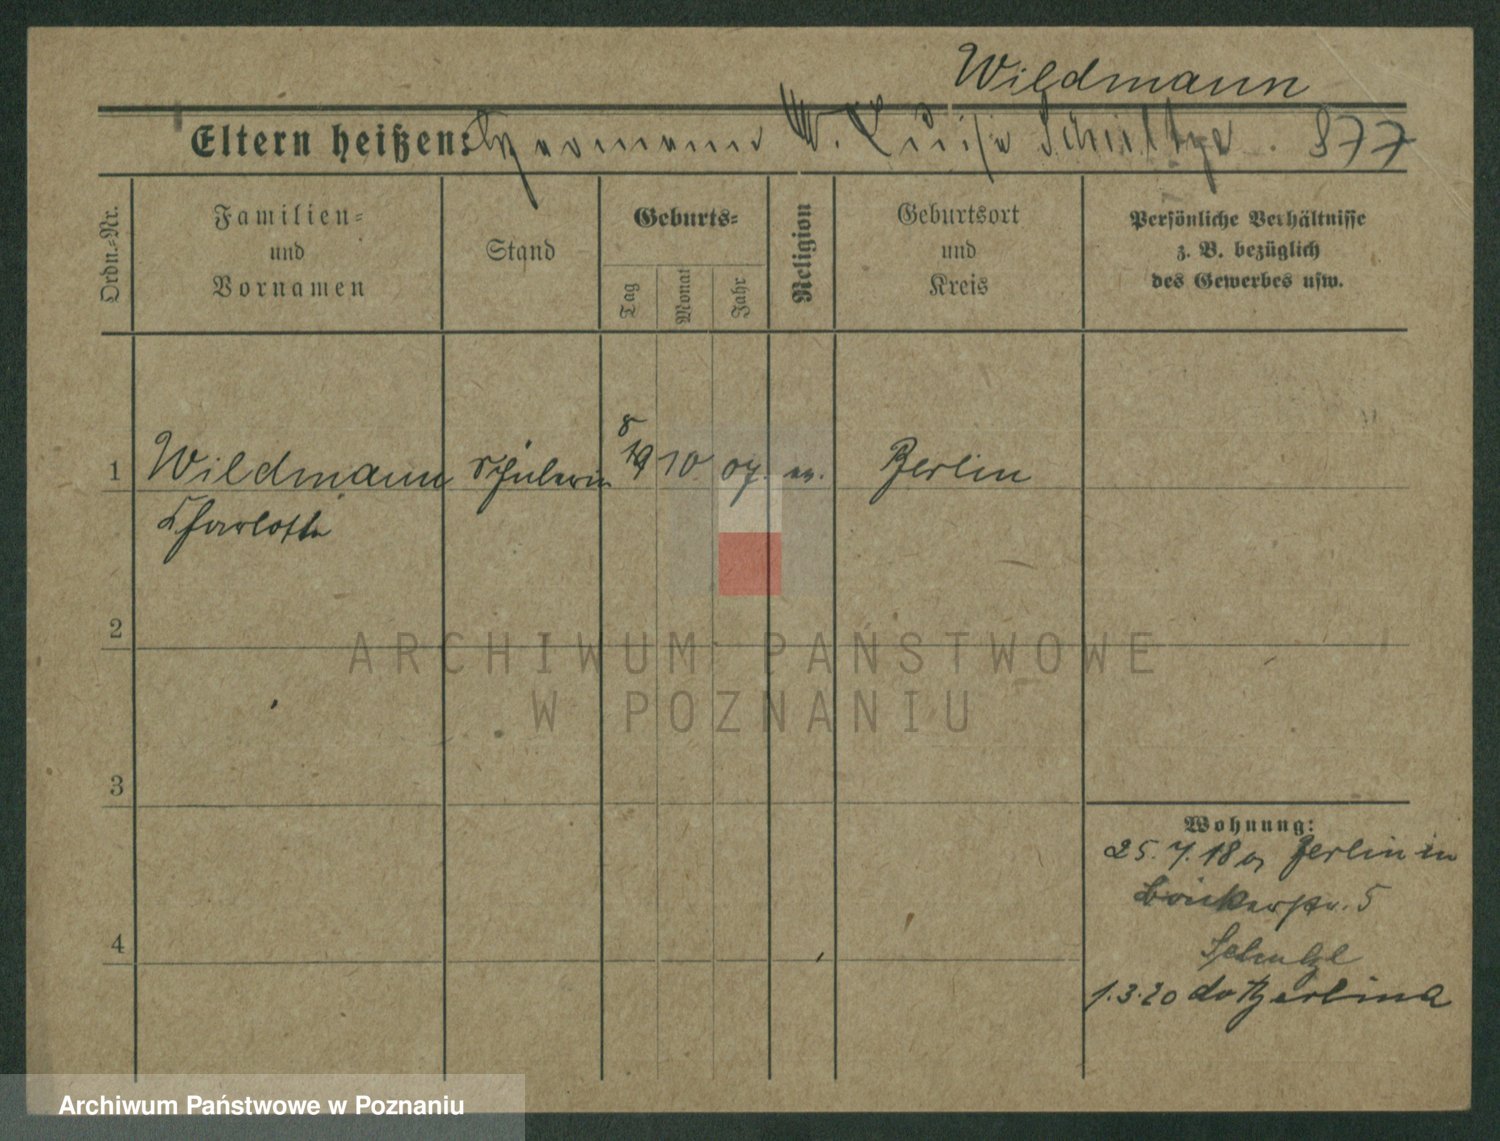 Wildmann
Eltern heißen: Hermann W. Luise Schultze. 877
Ordn.-Nr.
Familien-
und
Vornamen
Stand
Geburts-
Tag
Monat
Jahr
Religion
Geburtsort
und
Kreis
Persönliche Verhältnisse
z. B. bezüglich
des Gewerbes usw.
1 Wildmann Schülerin 8 19 10. 07. ev. Berlin
Charlotte
2
3
4
Wohnung:
25. 7. 18 Berlin in
5
Schulze
1.3.20
ARCHIWUM PAŃSTWOWE
W POZNANIU
Archiwum Państwowe w Poznaniu